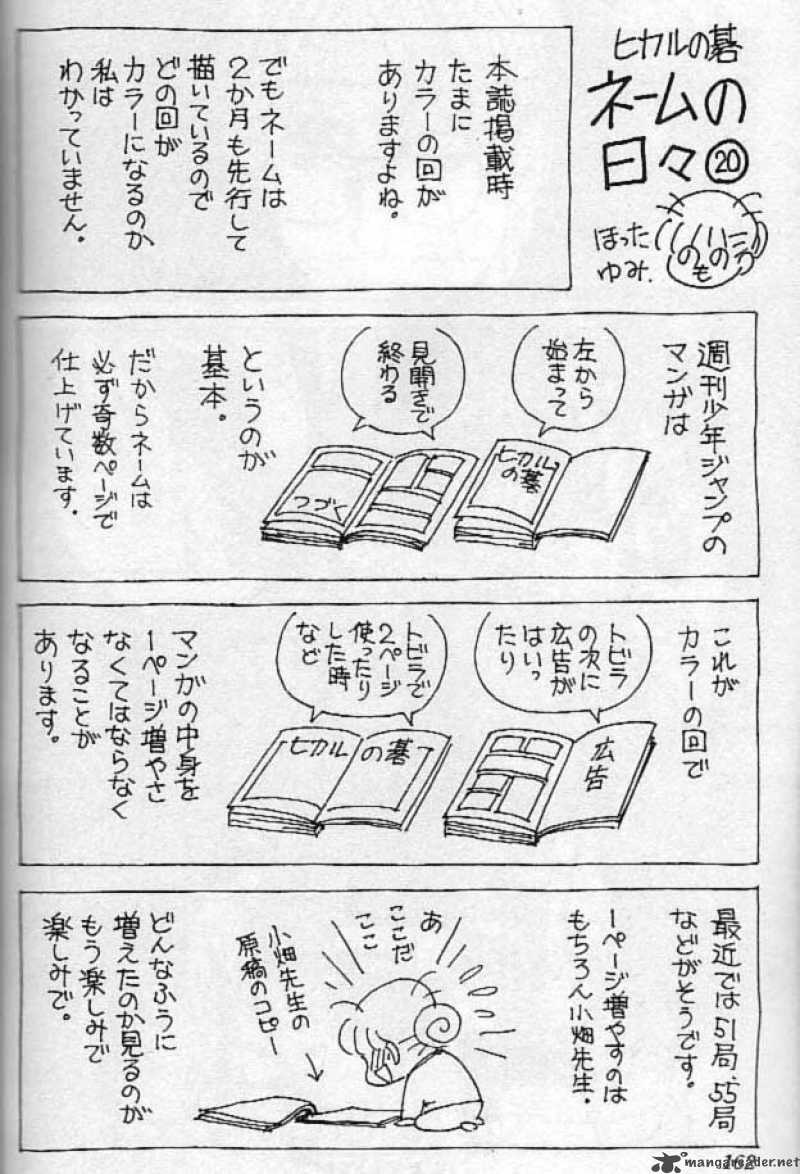 ヒカルの碁
ネームの
日々⑳
ほった
ゆみ.
本誌掲載時
たまに
カラーの回が
ありますよね。
でもネームは
2か月も先行して
描いているので
どの回が
カラーになるのか
私は
わかっていません。
週刊少年ジャンプの
マンガは
左から
始まって
ヒカル
の碁
見開きで
終わる
つづく
というのが
基本。
だからネームは
必ず奇数ページで
仕上げています。
これが
カラーの回で
トビラ
の次に
広告が
はいっ
たり
広告
トビラで
2ページ
使ったり
した時
など
ヒカルの碁
マンガの中身を
1ページ増やさ
なくてはならなく
なることが
あります。
最近では51局、55局
などがそうです。
1ページ増やすのは
もちろん小畑先生.
あ
ここだ
ここ
小畑先生の
原稿のコピー
どんなふうに
増えたのか見るのが
もう楽しみで
楽しみで。
162
mangareader.net